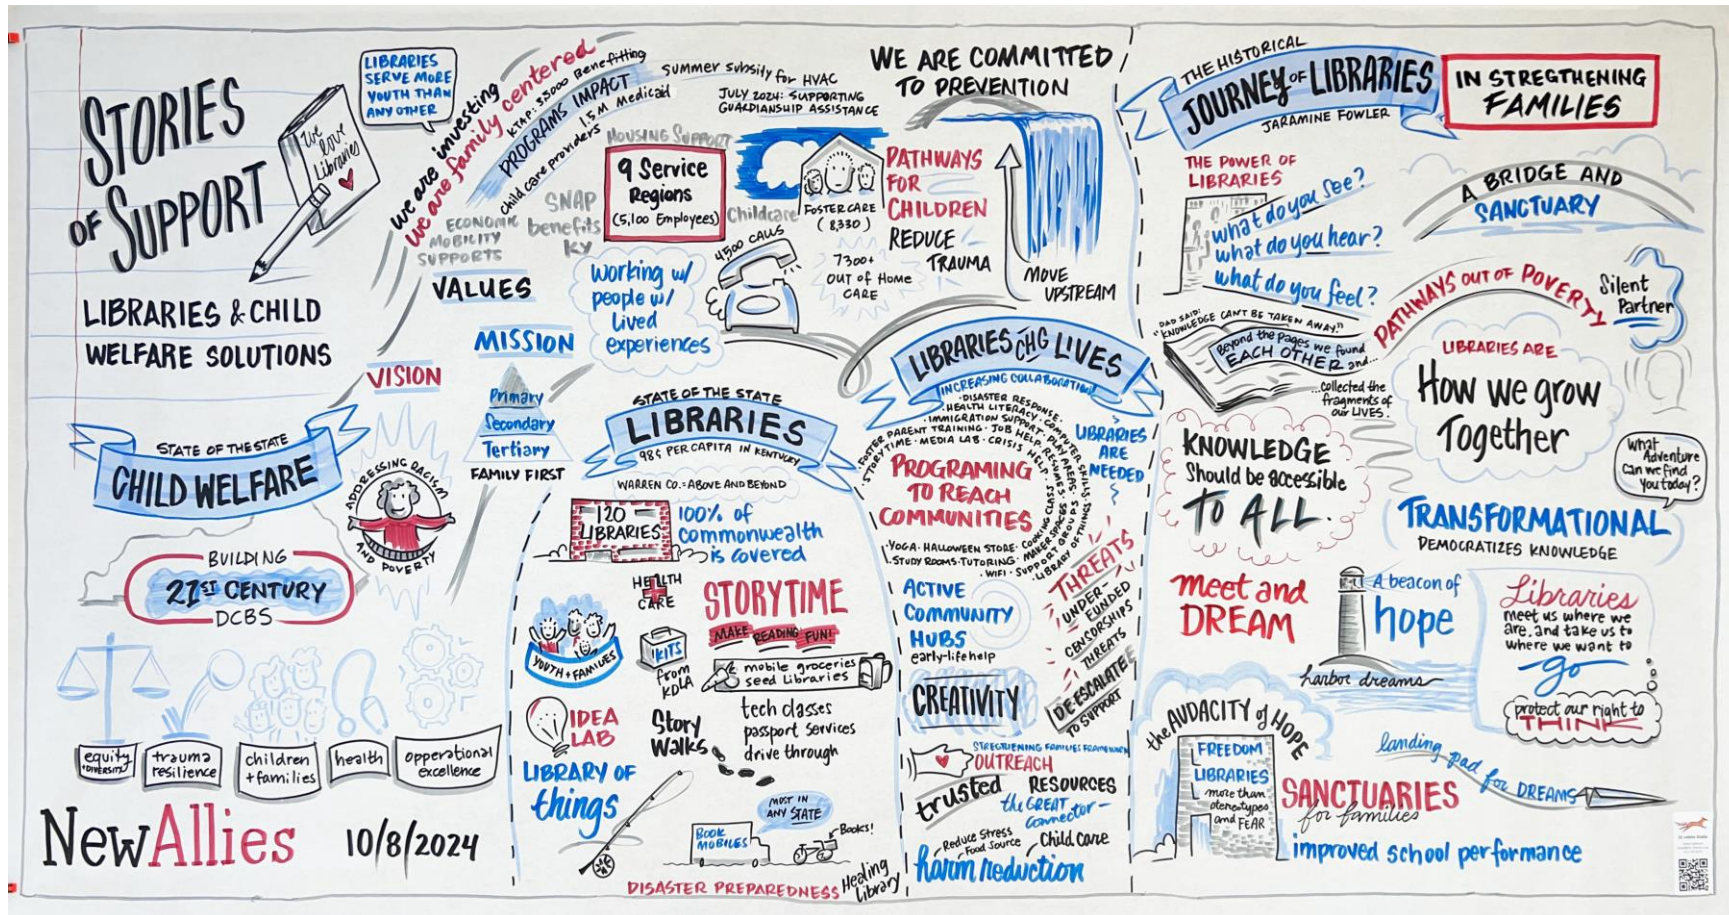 STORIES
OF SUPPORT
We
love
Libraries
LIBRARIES
SERVE MORE
YOUTH THAN
ANY OTHER
LIBRARIES & CHILD
WELFARE SOLUTIONS
STATE OF THE STATE
CHILD WELFARE
BUILDING
21ST CENTURY
DCBS
ADDRESSING RACISM
AND POVERTY
equity
+ DIVERSITY
trauma
resilience
children
+ families
health
opperational
excellence
NewAllies
10/8/2024
we are investing
we are family centered
KTAP: 35000 Benefitting
PROGRAMS IMPACT
child care providers 1.5 M Medicaid
summer subsity for HVAC
JULY 2024: SUPPORTING
GUARDIANSHIP ASSISTANCE
ECONOMIC
MOBILITY
SUPPORTS
SNAP
benefits
KY
HOUSING SUPPORT
9 Service
Regions
(5,100 Employees)
Childcare
FOSTER CARE
(8,330)
VALUES
MISSION
VISION
Primary
Secondary
Tertiary
FAMILY FIRST
Working w/
people w/
Lived
experiences
4500 CALLS
7300+
OUT OF HOME
CARE
WE ARE COMMITTED
TO PREVENTION
PATHWAYS
FOR
CHILDREN
REDUCE
TRAUMA
MOVE
UPSTREAM
STATE OF THE STATE
LIBRARIES
98¢ PER CAPITA IN KENTUCKY
WARREN CO. = ABOVE AND BEYOND
120
LIBRARIES
100% OF
commonwealth
is covered
HEALTH
CARE
YOUTH + FAMILIES
KITS
from
KDLA
STORYTIME
MAKE READING FUN!
mobile groceries
seed Libraries
IDEA
LAB
Story
Walks
tech classes
passport services
drive through
LIBRARY OF
things
MOST IN
ANY STATE
BOOK
MOBILES
Books!
DISASTER PREPAREDNESS
Healing
Library
LIBRARIES CHG LIVES
INCREASING COLLABORATION!
DISASTER RESPONSE
HEALTH LITERACY · COMPUTER SKILLS
IMMIGRATION SUPPORT · PLAY AREAS
FOSTER PARENT TRAINING · JOB HELP · RESUMES
STORYTIME · MEDIA LAB · CRISIS HELP
PROGRAMING
TO REACH
COMMUNITIES
YOGA · HALLOWEEN STORE · COOKING CLASS
STUDY ROOMS · TUTORING · MAKERSPACES
WIFI · SUPPORT GROUPS
LIBRARY OF THINGS
LIBRARIES
ARE
NEEDED
THREATS
UNDER-
FUNDED
CENSORSHIPS
THREATS
DE-ESCALATE
TO SUPPORT
ACTIVE
COMMUNITY
HUBS
early-life help
CREATIVITY
STREGTHENING FAMILIES FRAMEWORK
OUTREACH
trusted
RESOURCES
the GREAT
connector
Reduce Stress
Food Source
Child care
harm reduction
THE HISTORICAL
JOURNEY OF LIBRARIES
JARAMINE FOWLER
IN STREGTHENING
FAMILIES
THE POWER OF
LIBRARIES
what do you see?
what do you hear?
what do you feel?
A BRIDGE AND
SANCTUARY
PATHWAYS OUT OF POVERTY
Silent
Partner
DAD SAID:
"KNOWLEDGE CAN'T BE TAKEN AWAY."
Beyond the pages we found
EACH OTHER and...
...collected the
fragments of
our LIVES.
LIBRARIES ARE
How we grow
Together
KNOWLEDGE
Should be accessible
TO ALL.
what
Adventure
can we find
you today?
TRANSFORMATIONAL
DEMOCRATIZES KNOWLEDGE
meet and
DREAM
A beacon of
hope
harbor dreams
Libraries
meet us where we
are, and take us to
where we want to
go
protect our right to
THINK
the AUDACITY of HOPE
FREEDOM
LIBRARIES
more than
stereotypes
and FEAR
SANCTUARIES
for families
landing pad for DREAMS
improved school performance